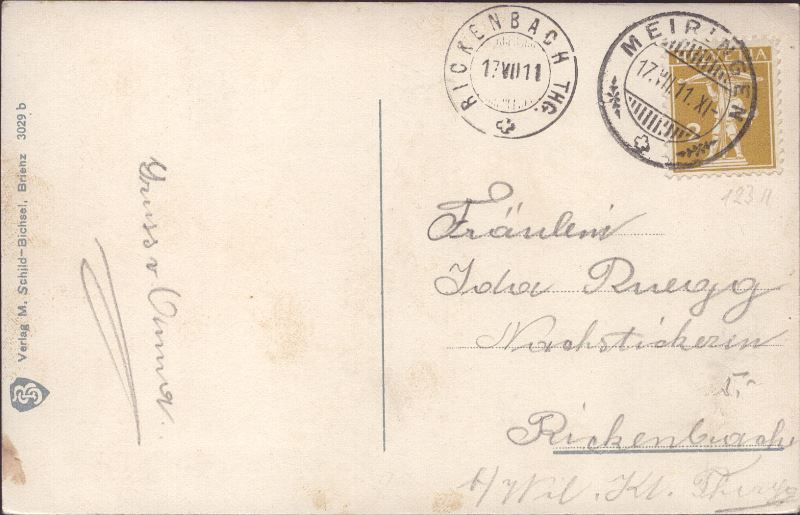 RICKENBACH THG.
17 VII 11
MEIRINGEN
17.VII.11.XI-
123 II
Verlag M. Schild-Bichsel, Brienz 3029 b
Gruss v Anna.
Fräulein
Ida Ruegg
Nachstickerin
5.-
Rickenbach
b/ Wil. Kt. Thurg